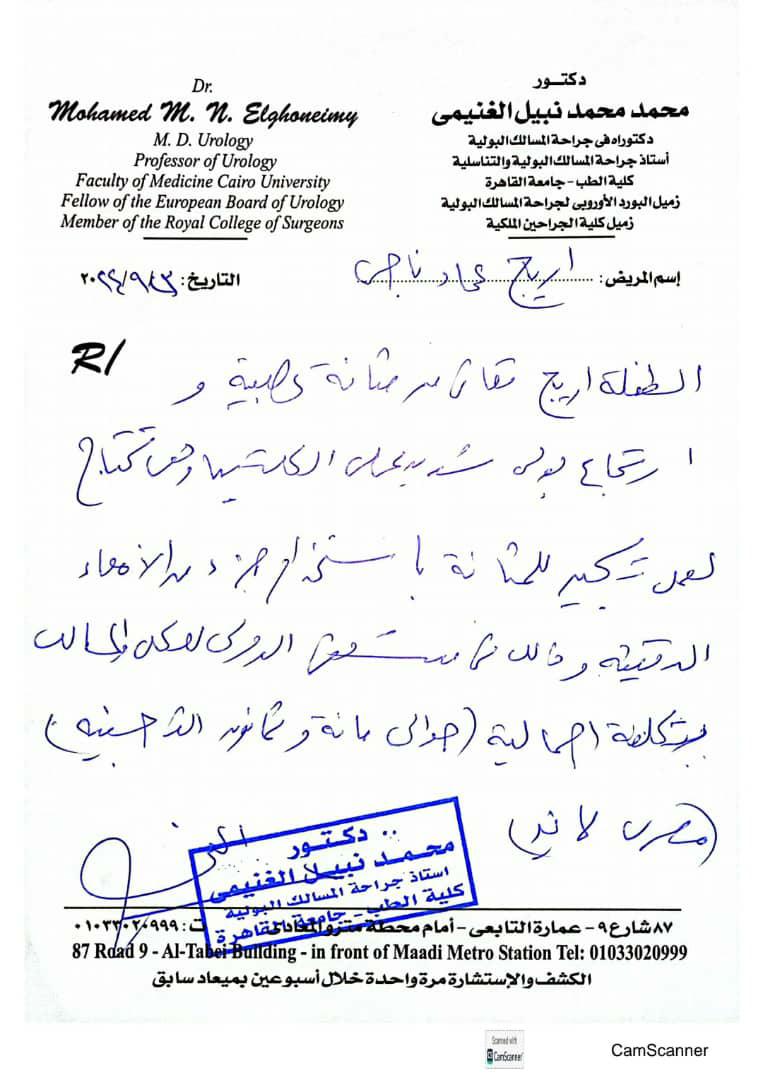 Dr.
Mohamed M. N. Elghoneimy
M. D. Urology
Professor of Urology
Faculty of Medicine Cairo University
Fellow of the European Board of Urology
Member of the Royal College of Surgeons
دكتـور
محمد محمد نبيل الغنيمى
دكتوراه فى جراحة المسالك البولية
أستاذ جراحة المسالك البولية والتناسلية
كلية الطب - جامعة القاهرة
زميل البورد الأوروبى لجراحة المسالك البولية
زميل كلية الجراحين الملكية
إسم المريض: اريج عماد ناجى
التاريخ: ٢٠٢٤/٩/٣
R/
الطفلة اريج تعانى من مثانة عصبية و
ارتجاع بولى شديد على الكليتين وهى تحتاج
لعمل تكبير للمثانة باستخدام جزء من الأمعاء
الدقيقة وذلك فى مستشفى للكلى والمسالك
بتكلفة اجمالية (حوالى مائة وثمانون الف جنيه)
(مصرى لا غير)
دكتـور
محمد نبيل الغنيمى
استاذ جراحة المسالك البولية
كلية الطب - جامعة القاهرة
٨٧ شارع ٩ - عمارة التابعى - أمام محطة مترو المعادى ت: ٠١٠٣٣٠٢٠٩٩٩
87 Road 9 - Al-Tabei Building - in front of Maadi Metro Station Tel: 01033020999
الكشف والإستشارة مرة واحدة خلال أسبوعين بميعاد سابق
Scanned with
CamScanner
CamScanner